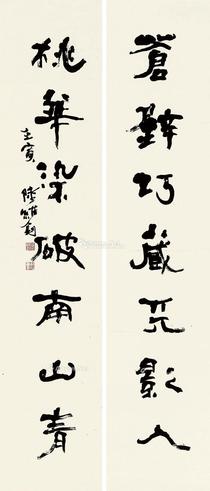 蒼韡巧藏天影入
桃華染破南山青
壬寅
陸維釗